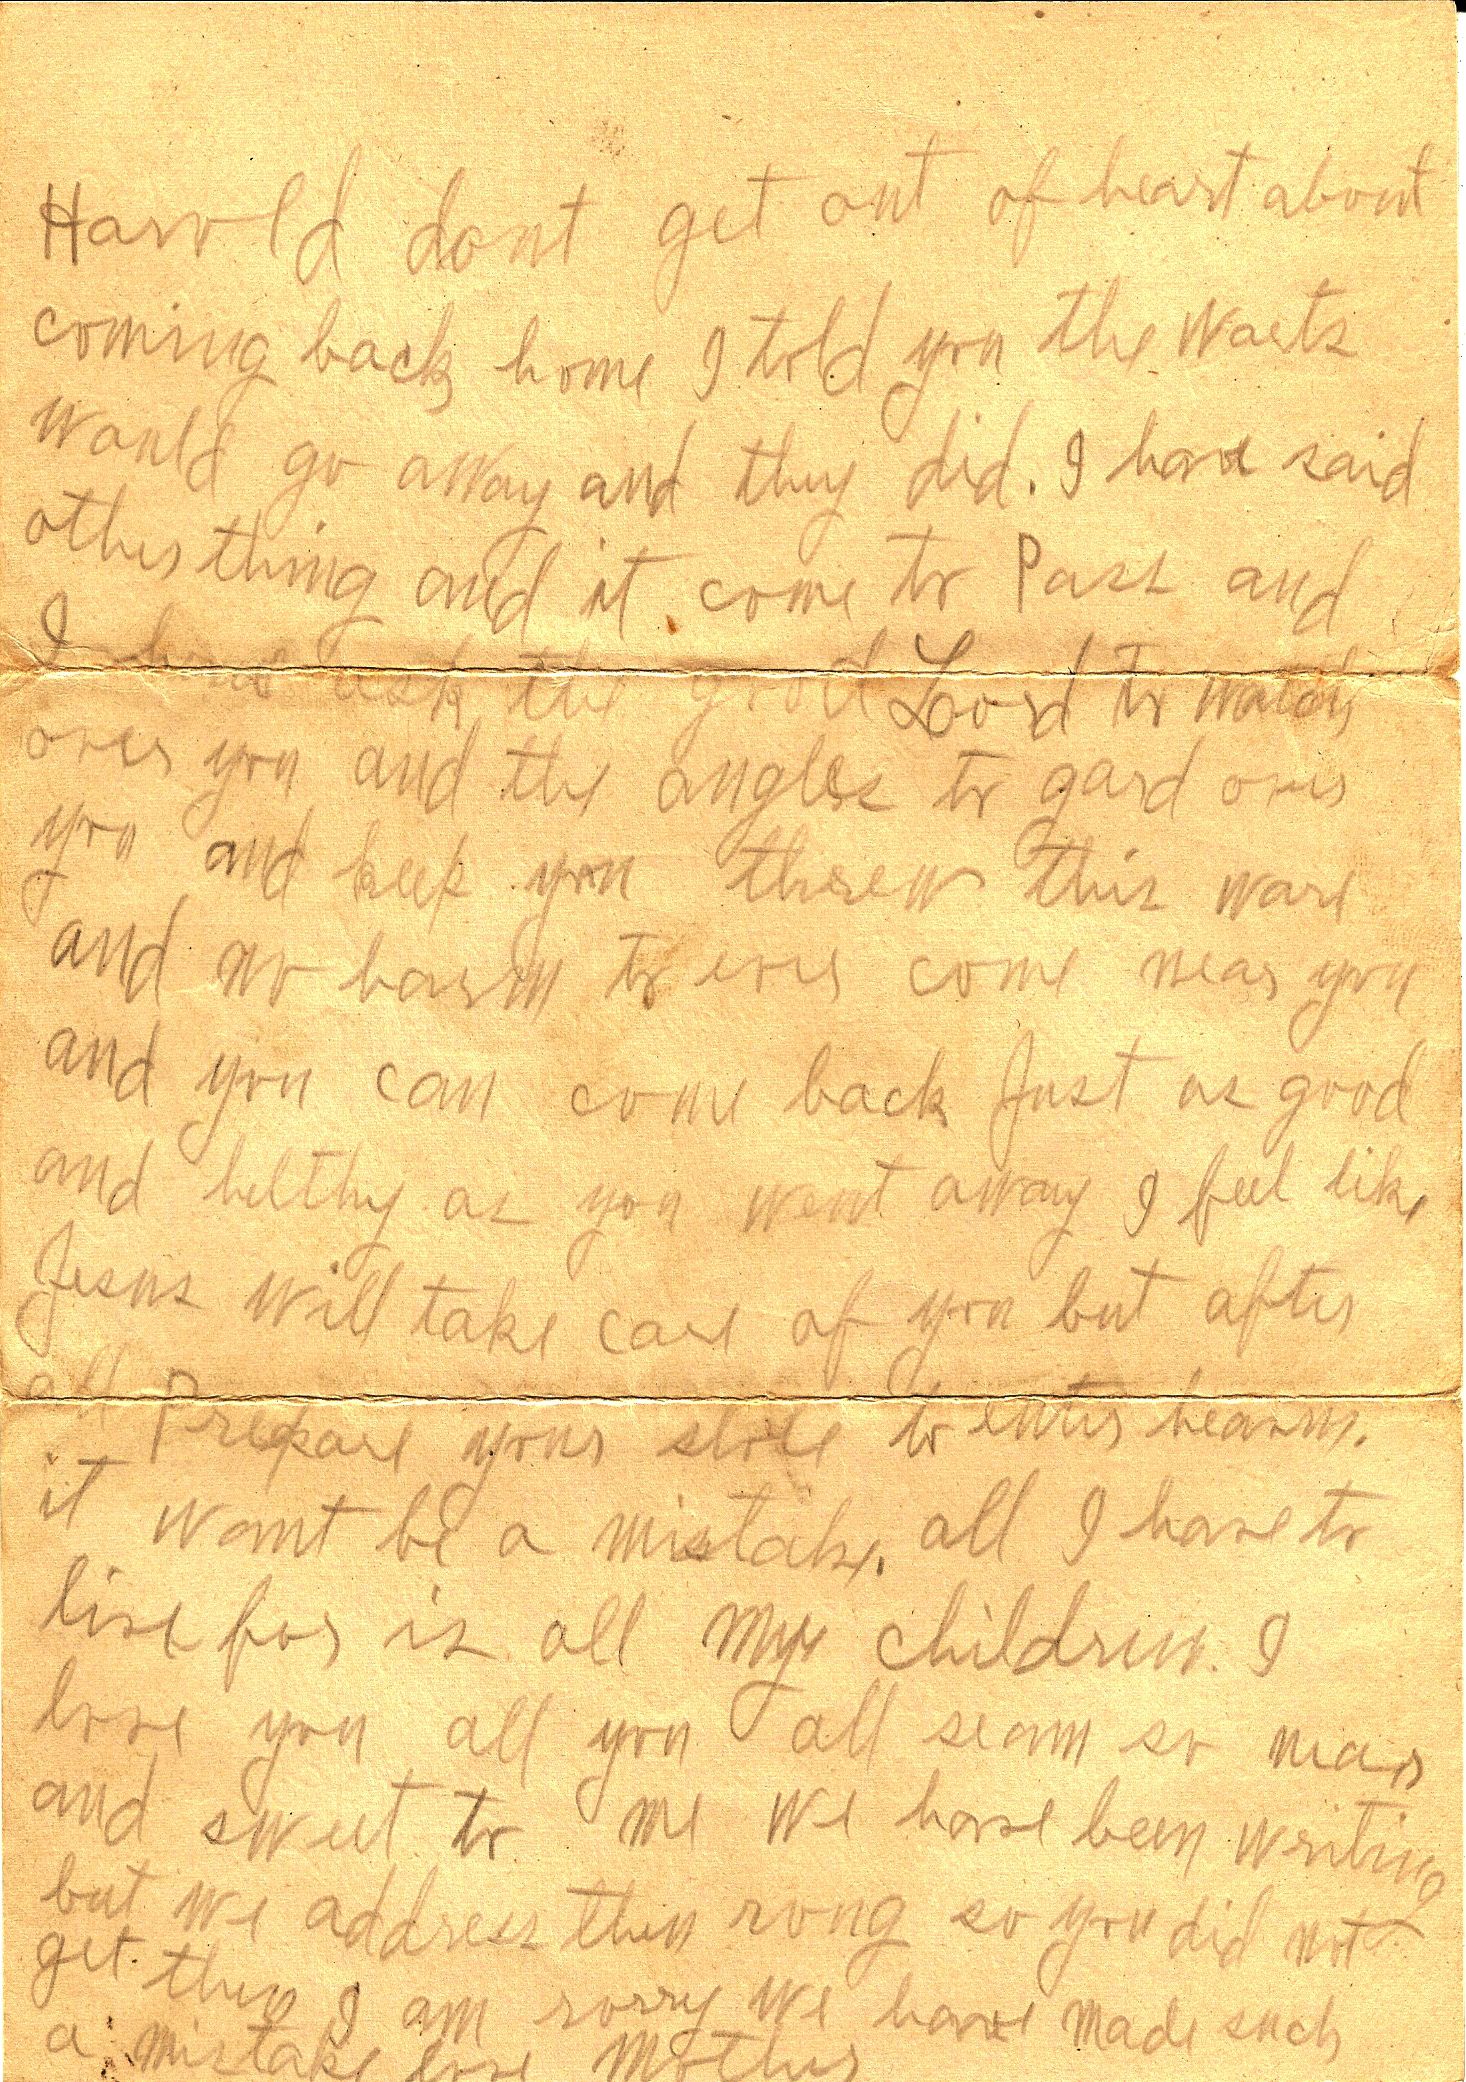 Harold dont get out of heart about
coming back home I told you the waets
would go away and they did. I have said
other thing and it come to Pass and
I have ask the good Lord to watch
over you and the angles to gard over
you and keep you threw this ware
and no harm to ever come near you
and you can come back Just as good
and helthy as you went away I feel like
Jesus will take care of you but after
all Prepare your slole to enter heavn.
it wont be a mistake. all I have to
live for is all My children. I
love you all you all seam so near
and sweet to me we have been writing
but we address them rong so you did not
get them I am sorry we have made such
a mistake love Mother